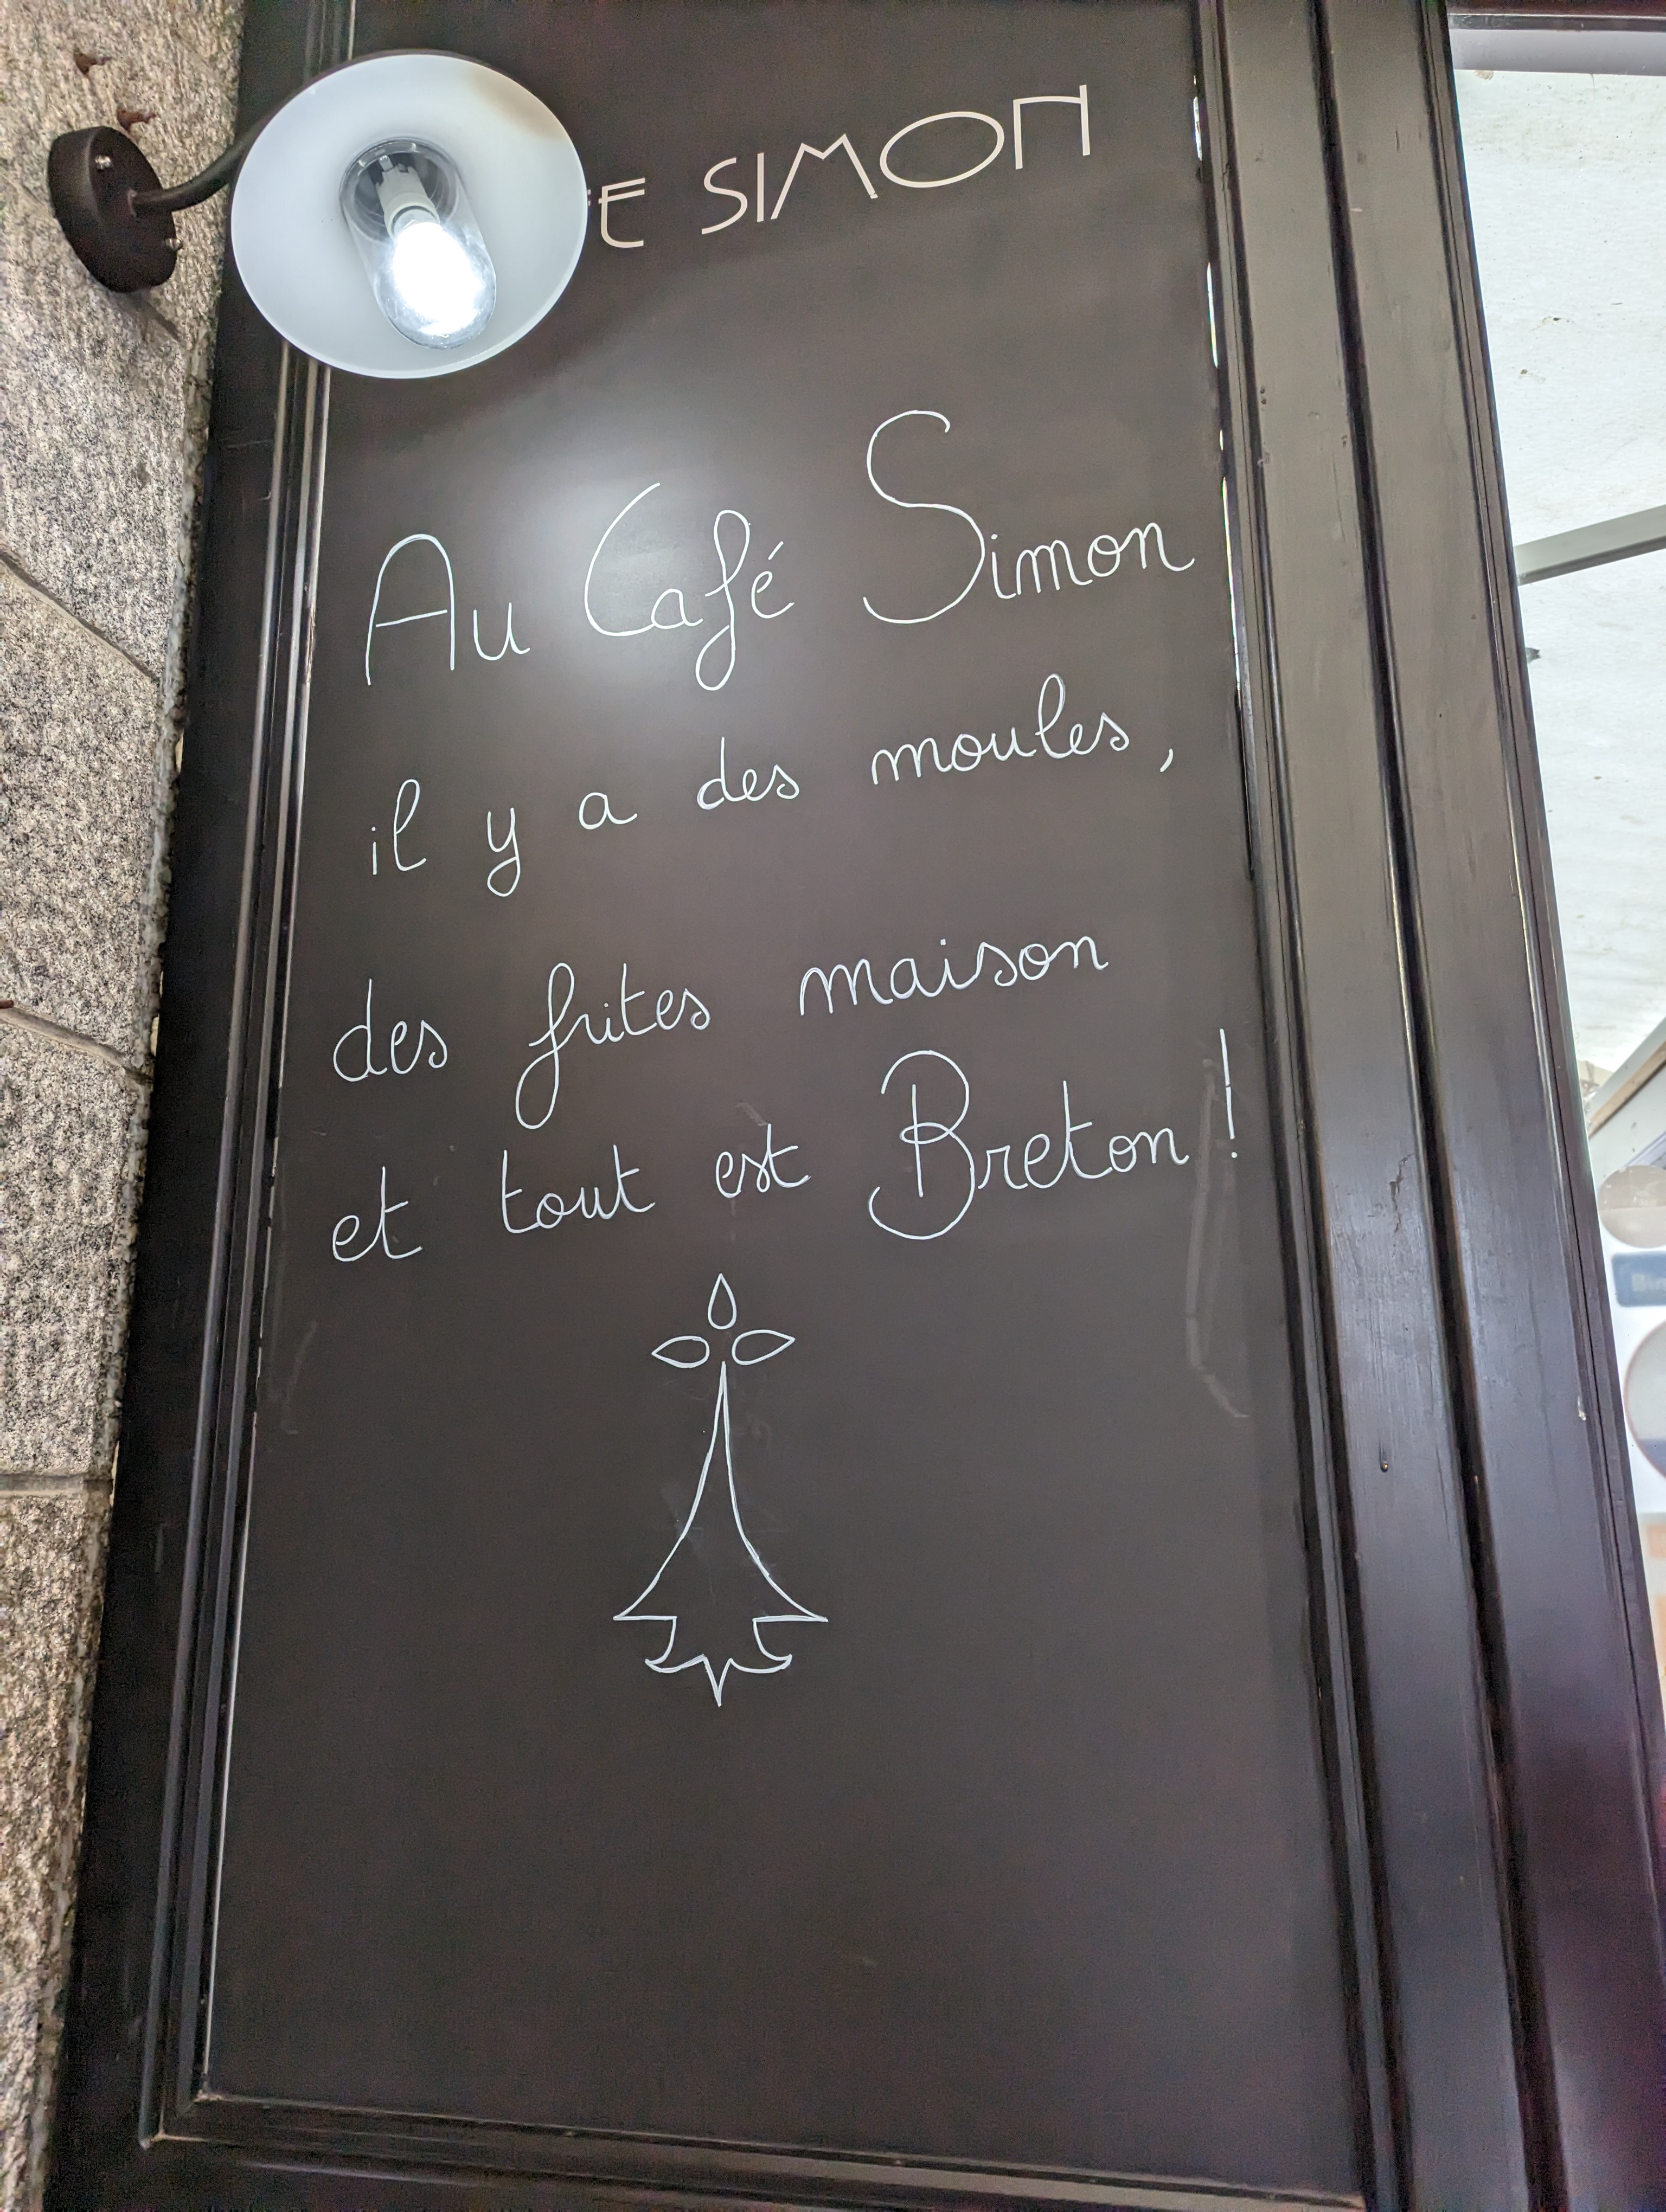 SIMON
Au Café Simon
il y a des moules,
des frites maison
et tout est Breton !